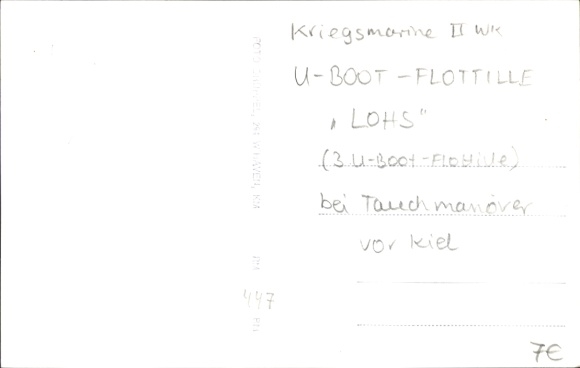 Kriegsmarine II WK
U-BOOT-FLOTTILLE
„LOHS"
(3 U-Boot-Flottille)
bei Tauchmanöver
vor Kiel
447
7€